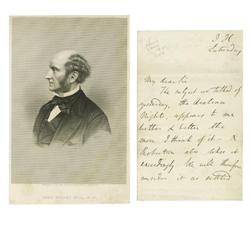 JOHN STUART MILL, M.P.
I. H.
Saturday
My dear Sir
The subject we talked of
yesterday, the Arabian
Nights, appears to me
better & better the
more I think of it. &
Robertson also takes it
exceedingly. We will therefore
consider it as settled